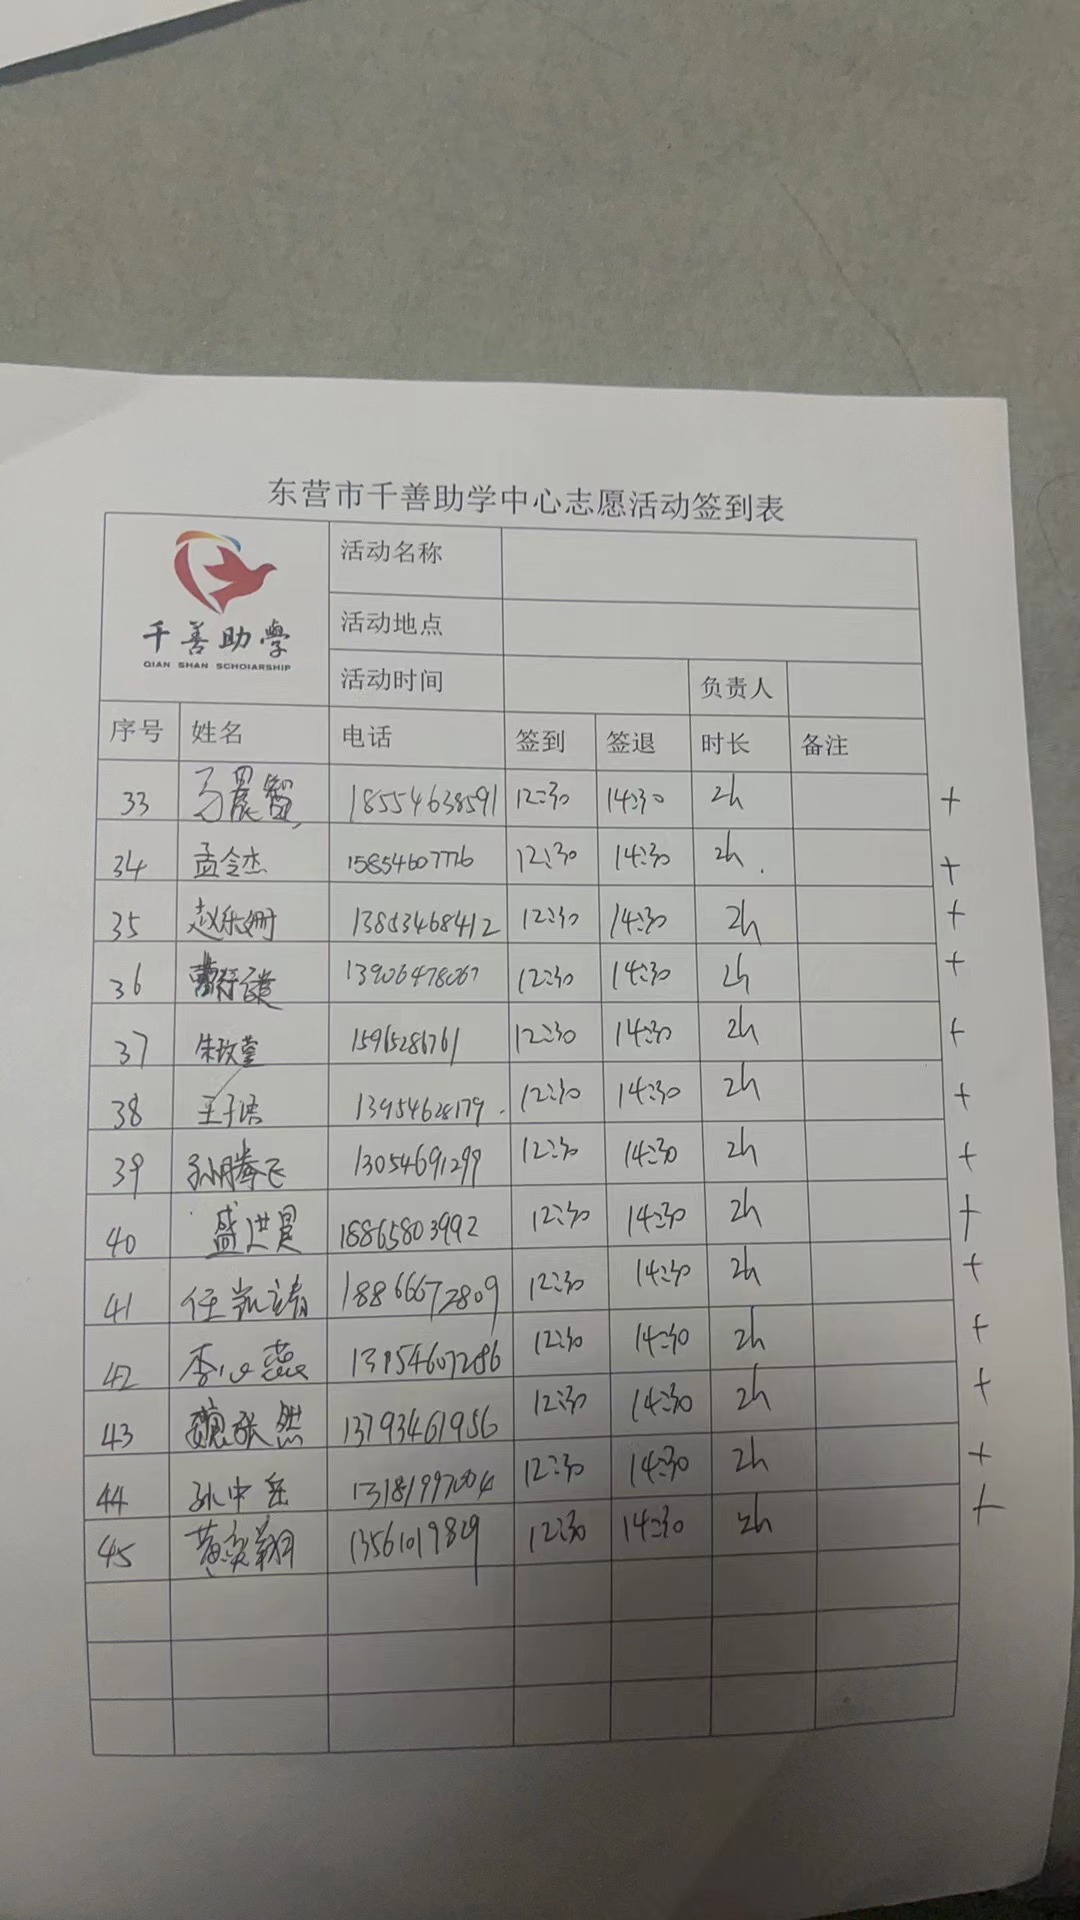 东营市千善助学中心志愿活动签到表
千善助學
QIAN SHAN SCHOIARSHIP
活动名称
活动地点
活动时间 负责人
序号 姓名 电话 签到 签退 时长 备注
33 马晨智 18554638591 12:30 14:30 2h +
34 孟令杰 15854607726 12:30 14:30 2h. +
35 赵乐姗 13853468412 12:30 14:30 2h +
36 13906478067 12:30 14:30 2h +
37 朱玫莹 15965286761 12:30 14:30 2h +
38 王子语 13954628179. 12:30 14:30 2h +
39 孙腾飞 13054691299 12:30 14:30 2h +
40 盛世昊 18865803992 12:30 14:30 2h +
41 任凯靖 18866672809 12:30 14:30 2h +
42 李心蕊 13954607286 12:30 14:30 2h +
43 魏张然 13793461956 12:30 14:30 2h +
44 孙中岳 13181997004 12:30 14:30 2h +
45 黄奕翔 13561019829 12:30 14:30 2h +